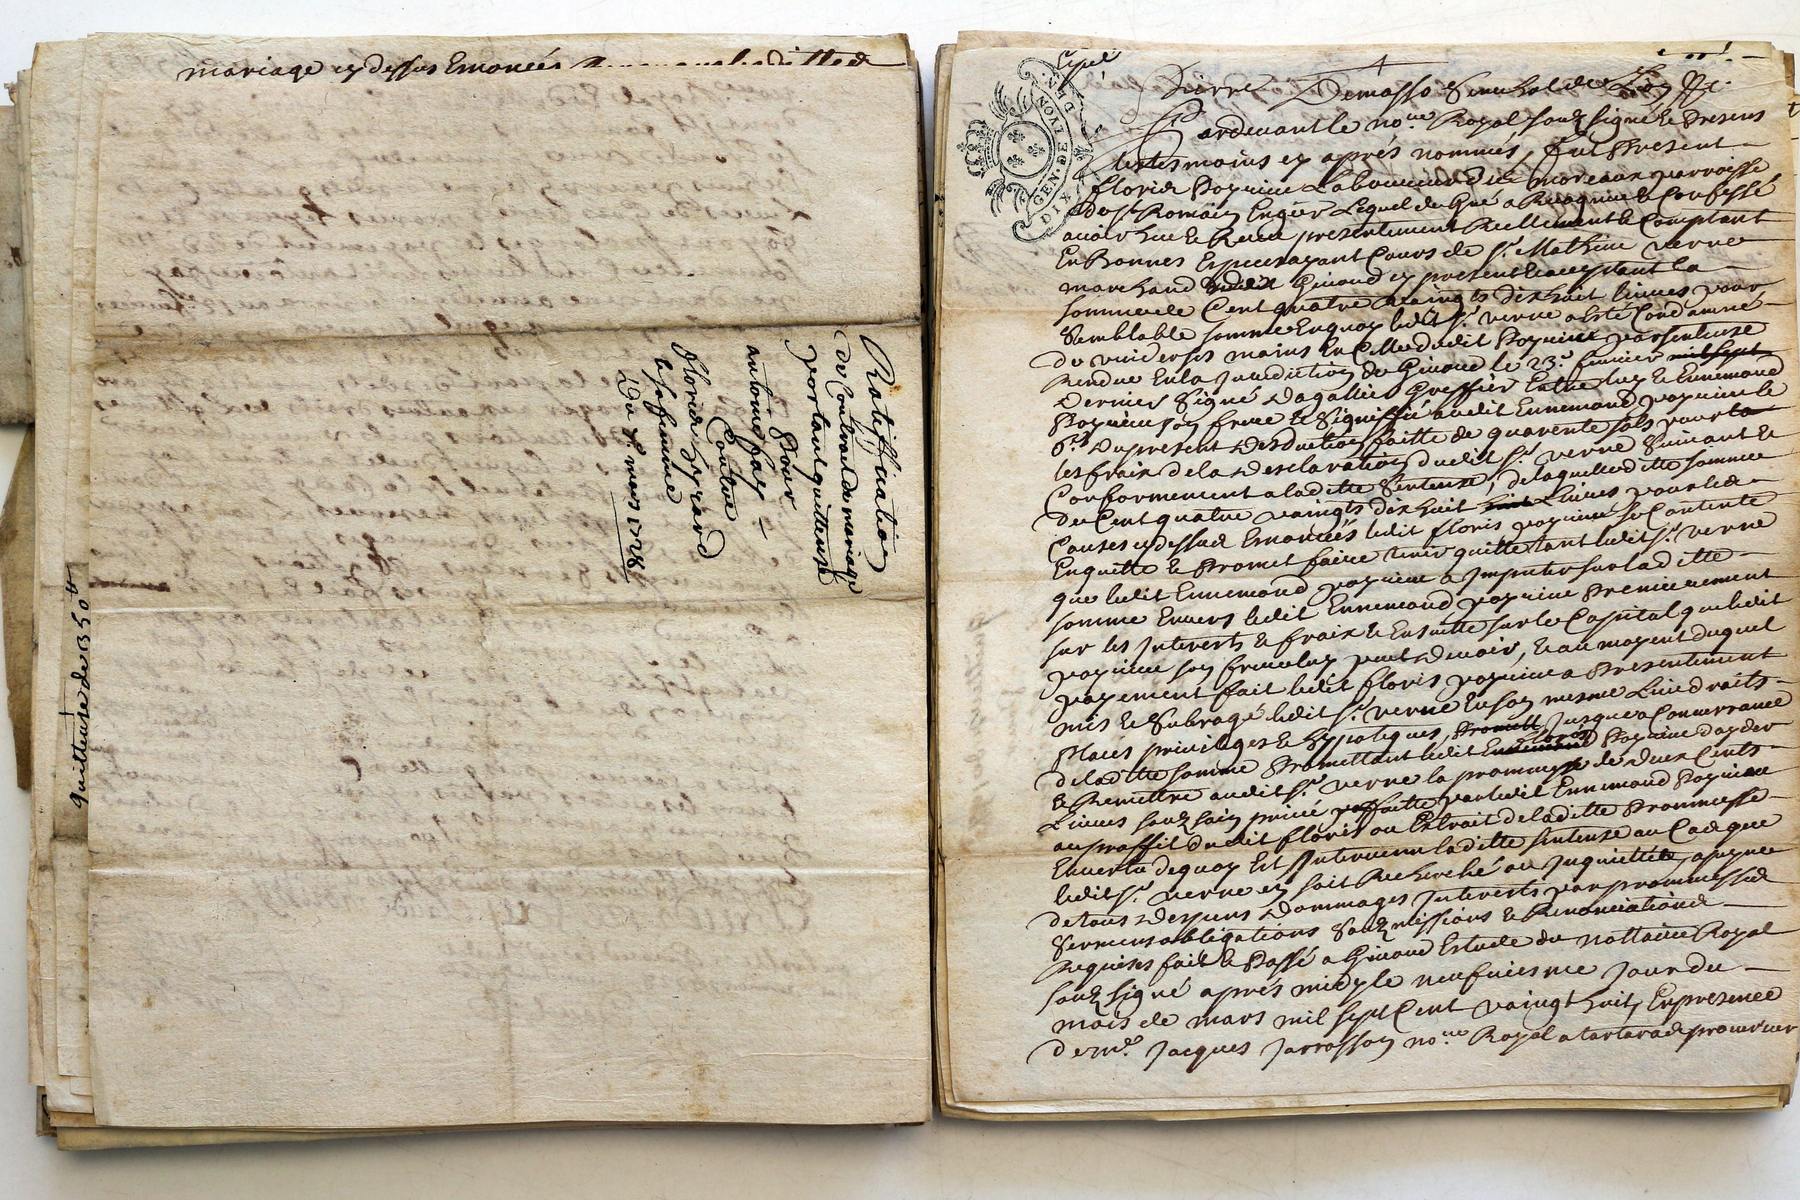 mariage cy dessus Enoncés
Ratiffication
de Contract de mariage
portant quittense
Pour
antoine fay
Contre
floride
sa femme
Du 8 mars 1728
quittense de 350 tt
GEN. DE LYON
DIX DEN
Pierre Demasso Seneschal de Lion &c.
Pardevant le no.re Royal souz signé & Presens
les tesmoins cy aprés nommés, fut Present
floris Poyuine Laboureur de moreaux parroisse
de st. Romain En gier Lequel de Gré a Recogneu & Confessé
avoir heu & Receu presentement Reellement & Comptant
En Bonnes Especes ayant Cours de sr. Mathieu verne
marchand Givord cy present & acceptant la
somme de Cent quatre vaingts dix huit livres pour
semblable somme En quoy ledit sr. verne a esté Condamné
de vuider ses mains En Celles dudit Poyuine par sentense
Rendue En la Jurediction de Givord le 23.e Janvier mil sept
Dernier signé Dagallier Greffier Entre luy & Ennemond
Poyuine son frere & signiffié audit Ennemond poyuine le
6.e du present deduction faitte de quarente sols pour la
les frais de la Desclaration dudit sr. verne suivant &
Conformement a laditte sentense, de laquelle ditte somme
de Cent quatre vaingts dix huit Livres pour les
Causes cy dessus Enoncées ledit floris poyuine se Contente
En quitte & Promet faire tenir quitte tant ledit sr. verne
que ledit Ennemond poyuine a Imputer sur laditte
somme Envers ledit Ennemond poyuine Premierement
sur les Interests & frais & Ensuitte sur le Capital que ledit
poyuine son frere luy peut Devoir, & au moyent duquel
payement fait ledit floris poyuine a Presentement
mis & subrogé ledit sr. verne En son mesme Lieu droits
Places privileges & hypoteques, Jusque a Concurrance
de laditte somme Promettant ledit Ennemond floris Poyuine d'ayder
& Remettre audit sr. verne la prommesse de deux Cents
Livres souz sein privé faitte par ledit Ennemond Poyuine
au proffit dudit floris ou Extrait de laditte Prommesse
En vertu de quoy Est Intervenu laditte sentense au Cas que
ledit sr. verne en soit Recherché ou Inquietté, a peyne
de tous Despens Dommages Interests par prommesses
sermens obligations souzmissions & Renonciations
Requises fait & Passé a Givord Estude du nottaire Royal
souz signé aprés midy le neufuiesme Jour du
mois de mars mil sept Cent vaingt huit, En presence
de me. Jacques Jarrosson no.re Royal a tartaras procureur